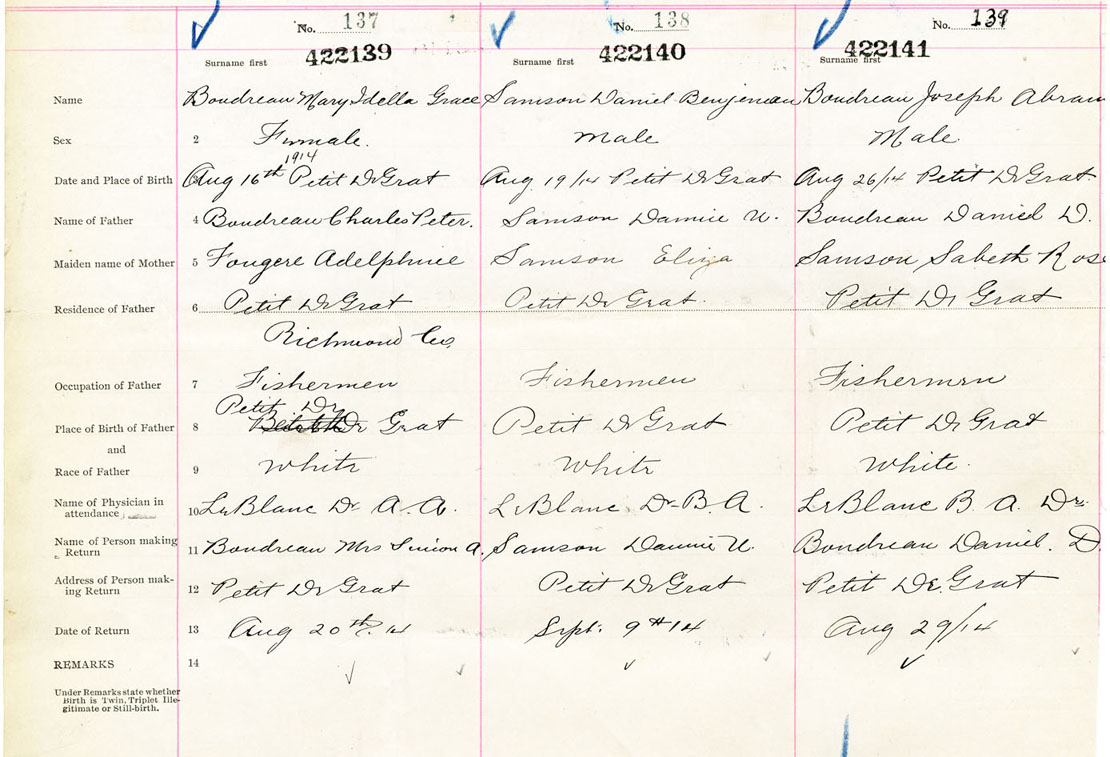 No. 137 No. 138 No. 139
422139 422140 422141
Surname first Surname first Surname first
Name Boudreau Mary Idella Grace Samson Daniel Benjeman Boudreau Joseph Abram
Sex 2 Female. Male Male
1914
Date and Place of Birth 3 Aug 16th Petit De Grat Aug 19/14 Petit De Grat Aug 26/14 Petit De Grat.
Name of Father 4 Boudreau Charles Peter. Samson U. Boudreau Daniel D.
Maiden name of Mother 5 Fougere Adelphine Samson Eliza Samson Sabeth Rose
Residence of Father 6 Petit De Grat Petit De Grat. Petit De Grat
Richmond Co,
Occupation of Father 7 Fishermen Fishermen Fishermen
Petit De
Place of Birth of Father 8 De Grat Petit De Grat Petit De Grat
and
Race of Father 9 White White White.
Name of Physician in
attendance 10 LeBlanc Dr A. A. LeBlanc Dr B. A. LeBlanc B A. Dr.
Name of Person making
Return 11 Boudreau Mrs Simon A. Samson U. Boudreau Daniel. D
Address of Person mak-
ing Return 12 Petit De Grat Petit De Grat Petit De Grat
Date of Return 13 Aug 20th 14 Sept. 9th 14 Aug 29/14
REMARKS 14
Under Remarks state whether
Birth is Twin, Triplet Ille-
gitimate or Still-birth.